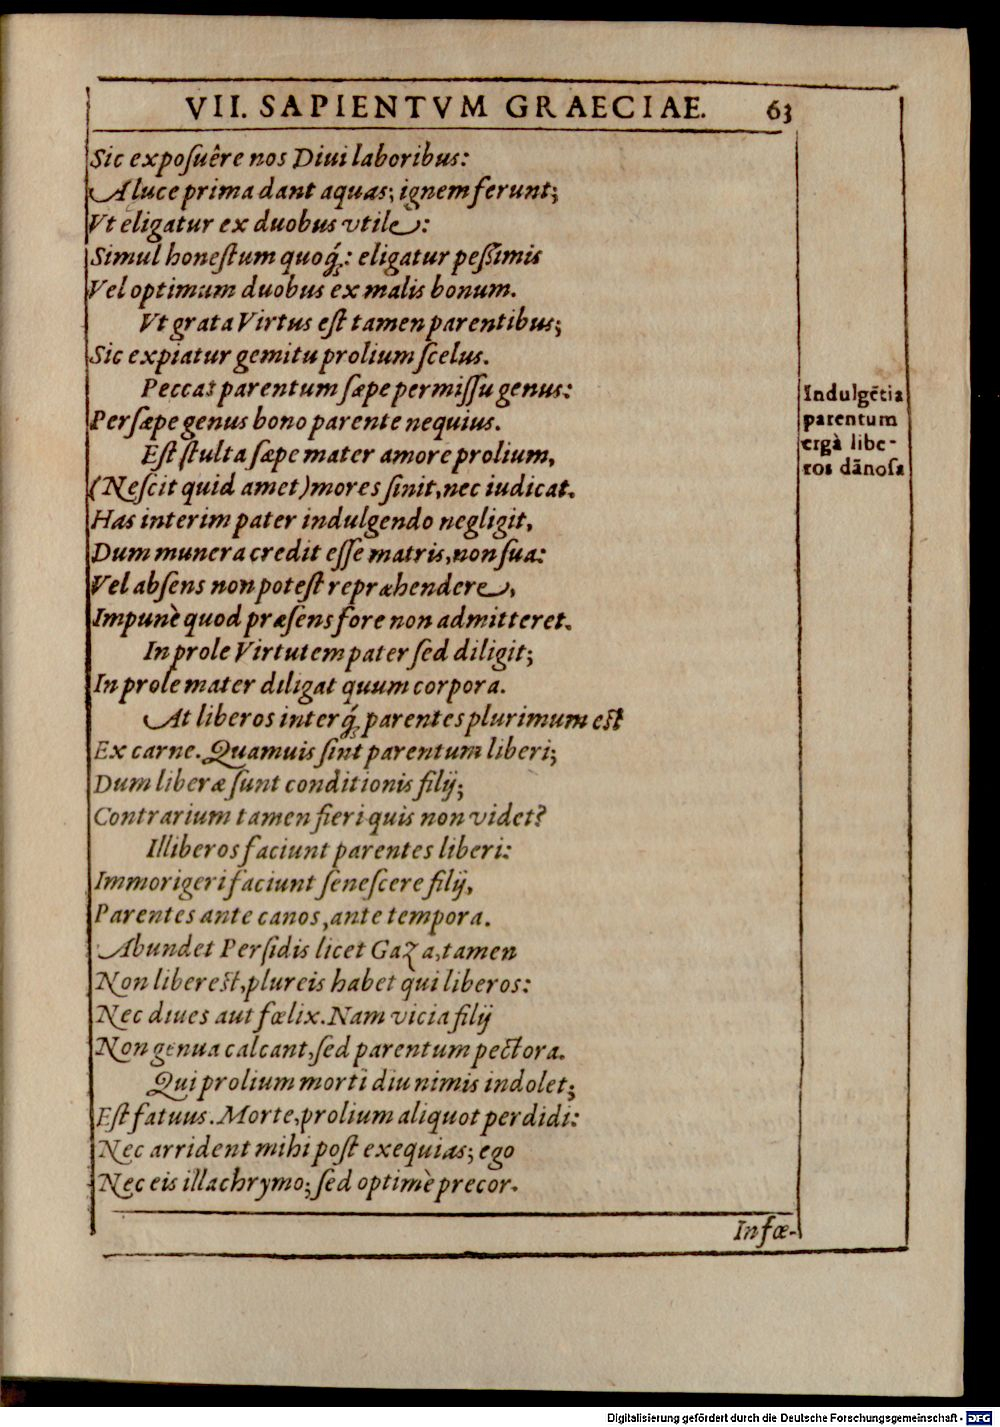 VII. SAPIENTVM GRAECIAE. 63
Sic exposuêre nos Diui laboribus:
A luce prima dant aquas; ignem ferunt;
Vt eligatur ex duobus vtile:
Simul honestum quoq́;: eligatur peßimis
Vel optimum duobus ex malis bonum.
Vt grata Virtus est tamen parentibus;
Sic expiatur gemitu prolium scelus.
Peccat parentum sæpe permissu genus:
Persæpe genus bono parente nequius.
Est stulta sæpe mater amore prolium,
(Nescit quid amet) mores sinit, nec iudicat.
Has interim pater indulgendo negligit,
Dum munera credit esse matris, non sua:
Vel absens non potest repræhendere,
Impunè quod præsens fore non admitteret.
In prole Virtutem pater sed diligit;
In prole mater diligat quum corpora.
At liberos interq́; parentes plurimum est
Ex carne. Quamuis sint parentum liberi;
Dum liberæ sunt conditionis filij;
Contrarium tamen fieri quis non videt?
Illiberos faciunt parentes liberi:
Immorigeri faciunt senescere filij,
Parentes ante canos, ante tempora.
Abundet Persidis licet Gaza, tamen
Non liber est, plureis habet qui liberos:
Nec diues aut fœlix. Nam vicia filij
Non genua calcant, sed parentum pectora.
Qui prolium morti diu nimis indolet;
Est fatuus. Morte, prolium aliquot perdidi:
Nec arrident mihi post exequias; ego
Nec eis illachrymo; sed optimè precor.
Infœ-
Indulgētia
parentum
ergà libe-
ros dānosa
Digitalisierung gefördert durch die Deutsche Forschungsgemeinschaft - DFG